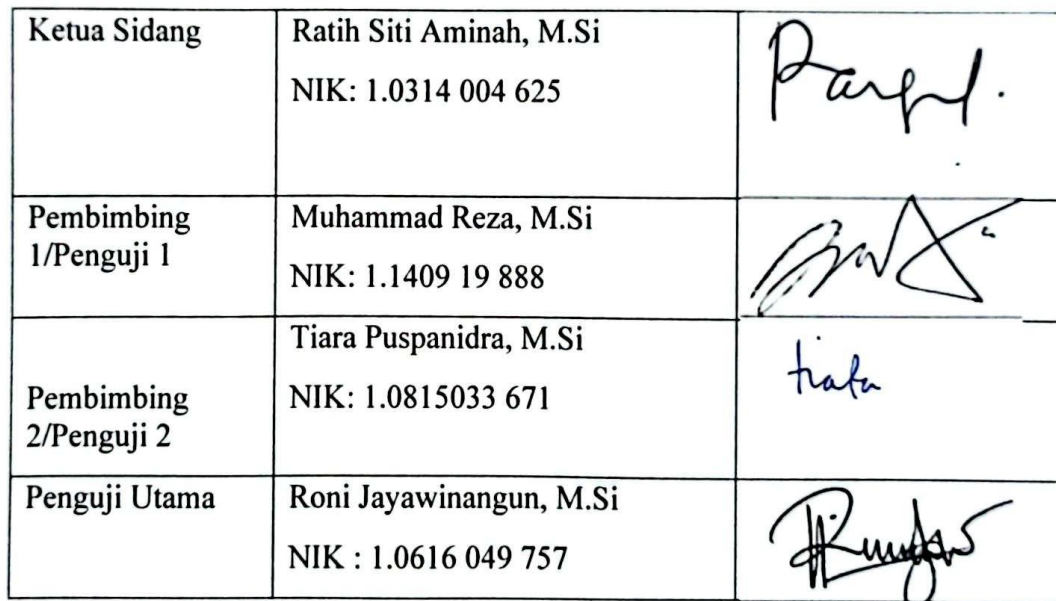 Ketua Sidang
Ratih Siti Aminah, M.Si
NIK: 1.0314 004 625
Pembimbing
1/Penguji 1
Muhammad Reza, M.Si
NIK: 1.1409 19 888
Pembimbing
2/Penguji 2
Tiara Puspanidra, M.Si
NIK: 1.0815033 671
Penguji Utama
Roni Jayawinangun, M.Si
NIK : 1.0616 049 757